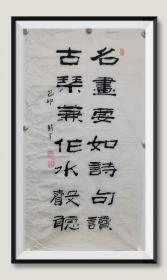 名畫要如詩句讀
古琴兼作水聲聽
己卯